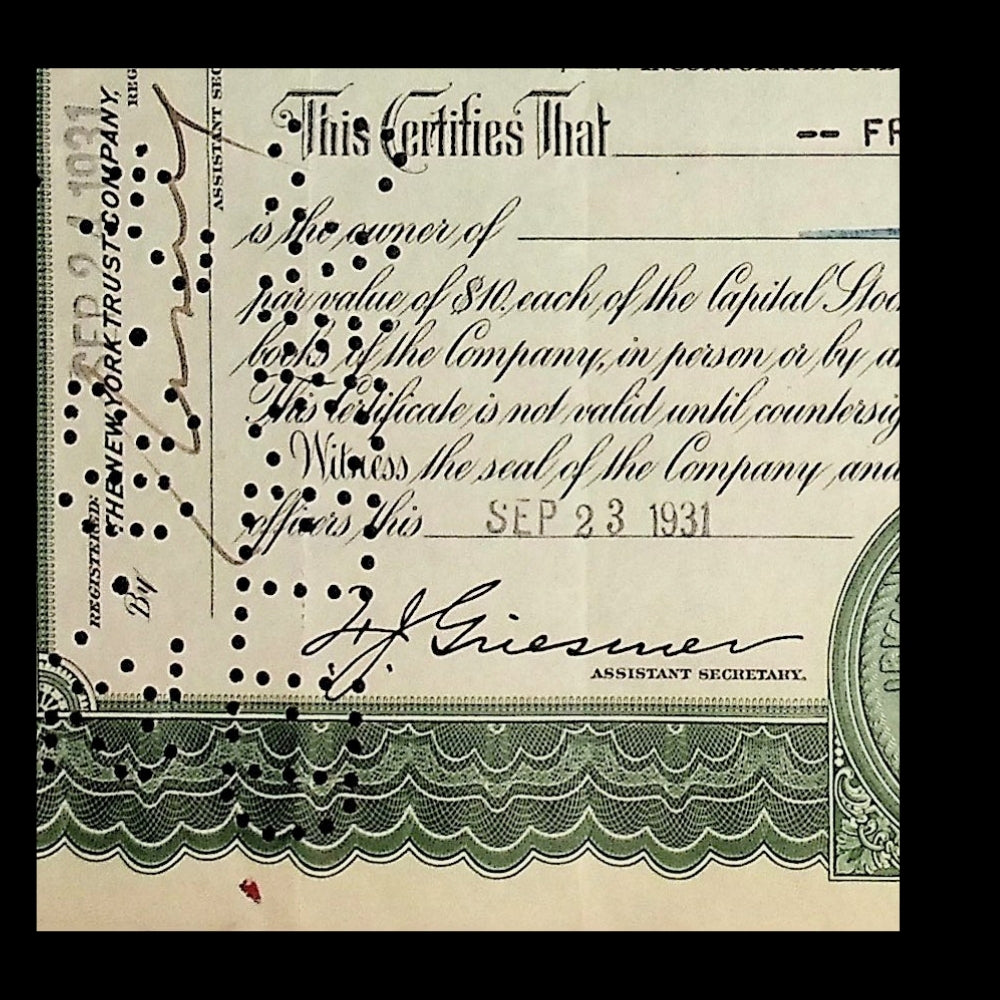 This Certifies That -- FR
is the owner of
par value of $10. each of the Capital Stoc
books of the Company, in person or by a
This Certificate is not valid until countersig
Witness the seal of the Company and
officers this SEP 23 1931
F J Griesmer
ASSISTANT SECRETARY.
REGISTERED:
THE NEW YORK TRUST COMPANY,
By
SEP 24 1931
REG
ASSISTANT SEC